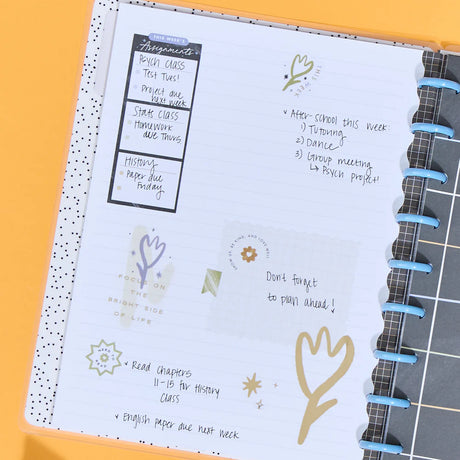 THIS WEEK'S
Assignments
Psych Class
Test Tues!
Project due
next week
Stats Class
Homework
due Thurs
History
Paper due
Friday
THIS WEEK
After school this week:
1) Tutoring
2) Dance
3) Group meeting
↳ Psych project!
FOCUS ON
THE
BRIGHT SIDE
OF LIFE
Don't forget
to plan ahead!
Read Chapters
11-15 for History
Class
English paper due next week